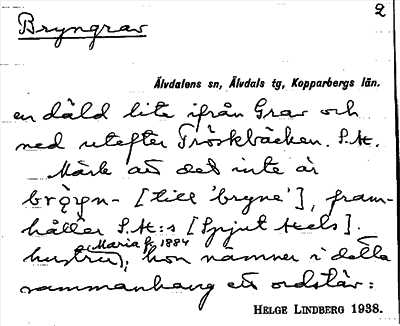 Bryngrav
2
Älvdalens sn, Älvdals tg, Kopparbergs län.
en däld lite ifrån Grav och
ned utefter Tröskbäcken. S.H.
Märk att det inte är
brǫgn- [till 'bryne'], fram-
håller S.H:s [Spjut Hels].
hustru (Maria f. 1884), hon nämner i detta
sammanhang ett ordstäv:
HELGE LINDBERG 1938.